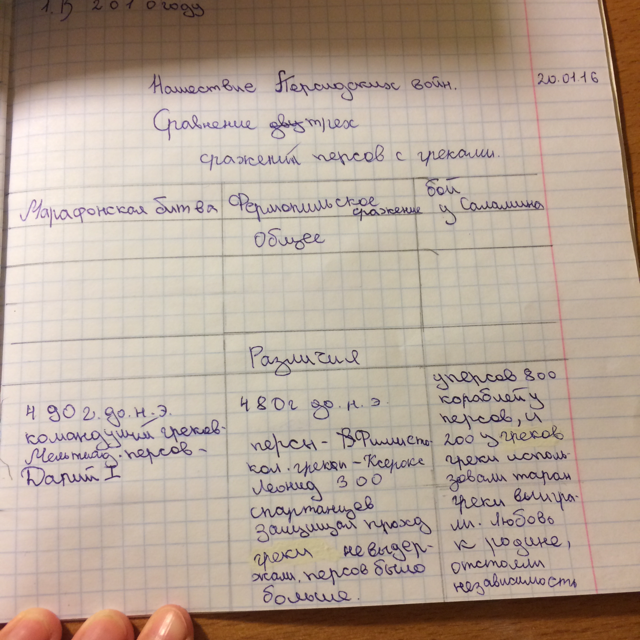 1.В 2010году
20.01.16
Нашествие Персидских войн.
Сравнение двух трех
сражений персов с греками.
Марафонская битва
Фермопильское
сражение
бой
у Саламина
Общее
Различия
490г. до. н. э.
командущий греков-
персов-
Дарий I
480г до. н. э
персы-
кал. Ксеркс
Леонид 300
спартанцев
защищал проход
греки не выдер-
жали, персов было
больше.
у персов 800
кораблей у
персов, и
200 у греков
греки исполь-
зовали таран
греки выигра-
ли. Любовь
к родине,
отстояли
независимость